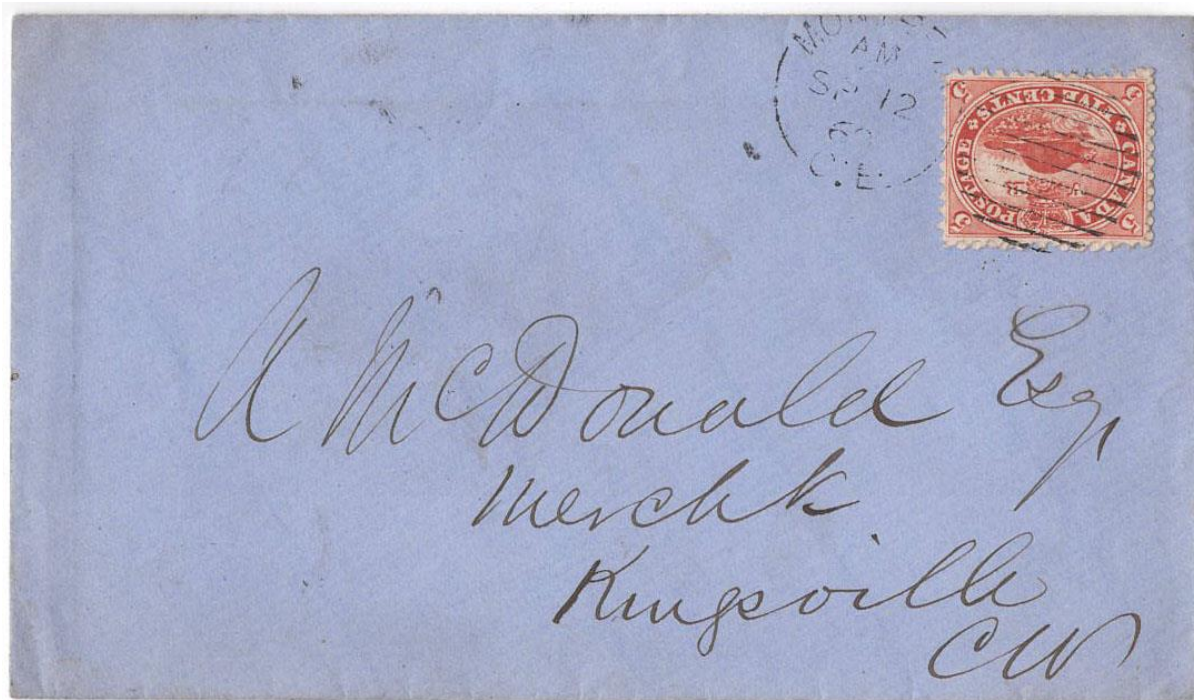 AM
SP 12
C.E.
5 5
CANADA POSTAGE
FIVE CENTS
5 5
A McDonald Esq,
Mercht
Kingsville
CW